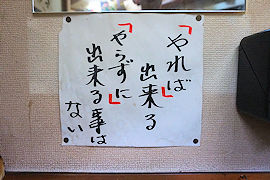 「やれば」
出来る
「やらずに」
出来る事は
ない